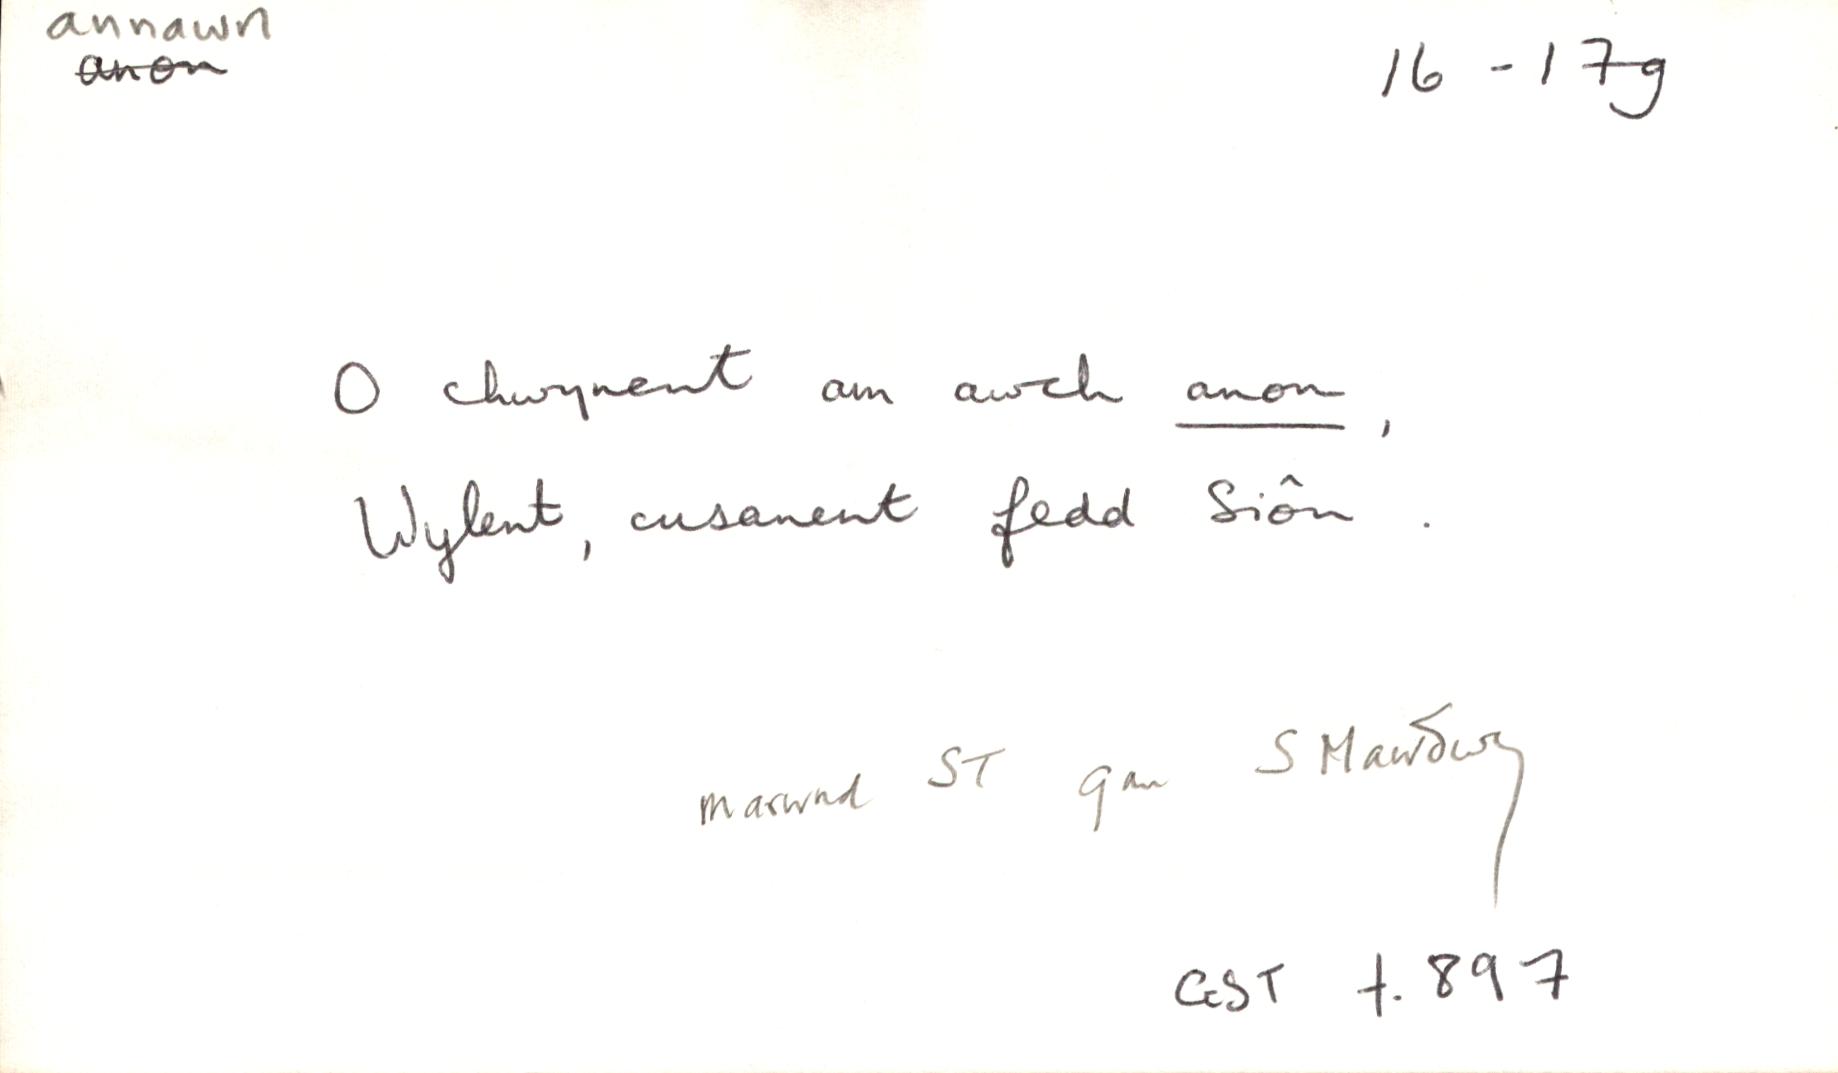 annawn
anon
16 - 17g
O chwynent am awch anon,
Wylent, cusanent fedd Siôn.
marwnad ST gan S Mawddwy
GST t. 897